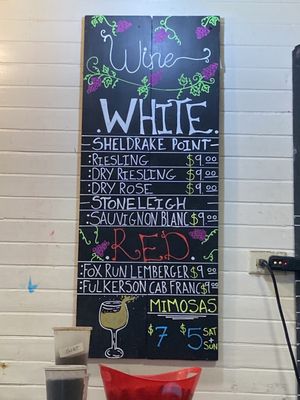 Wine
WHITE
SHELDRAKE POINT
RIESLING $9.00
DRY RIESLING $9.00
DRY ROSE $9.00
STONELEIGH
SAUVIGNON BLANC $9.00
RED
FOX RUN LEMBERGER $9.00
FULKERSON CAB FRANC $9.00
MIMOSAS
$7 $5 SAT + SUN